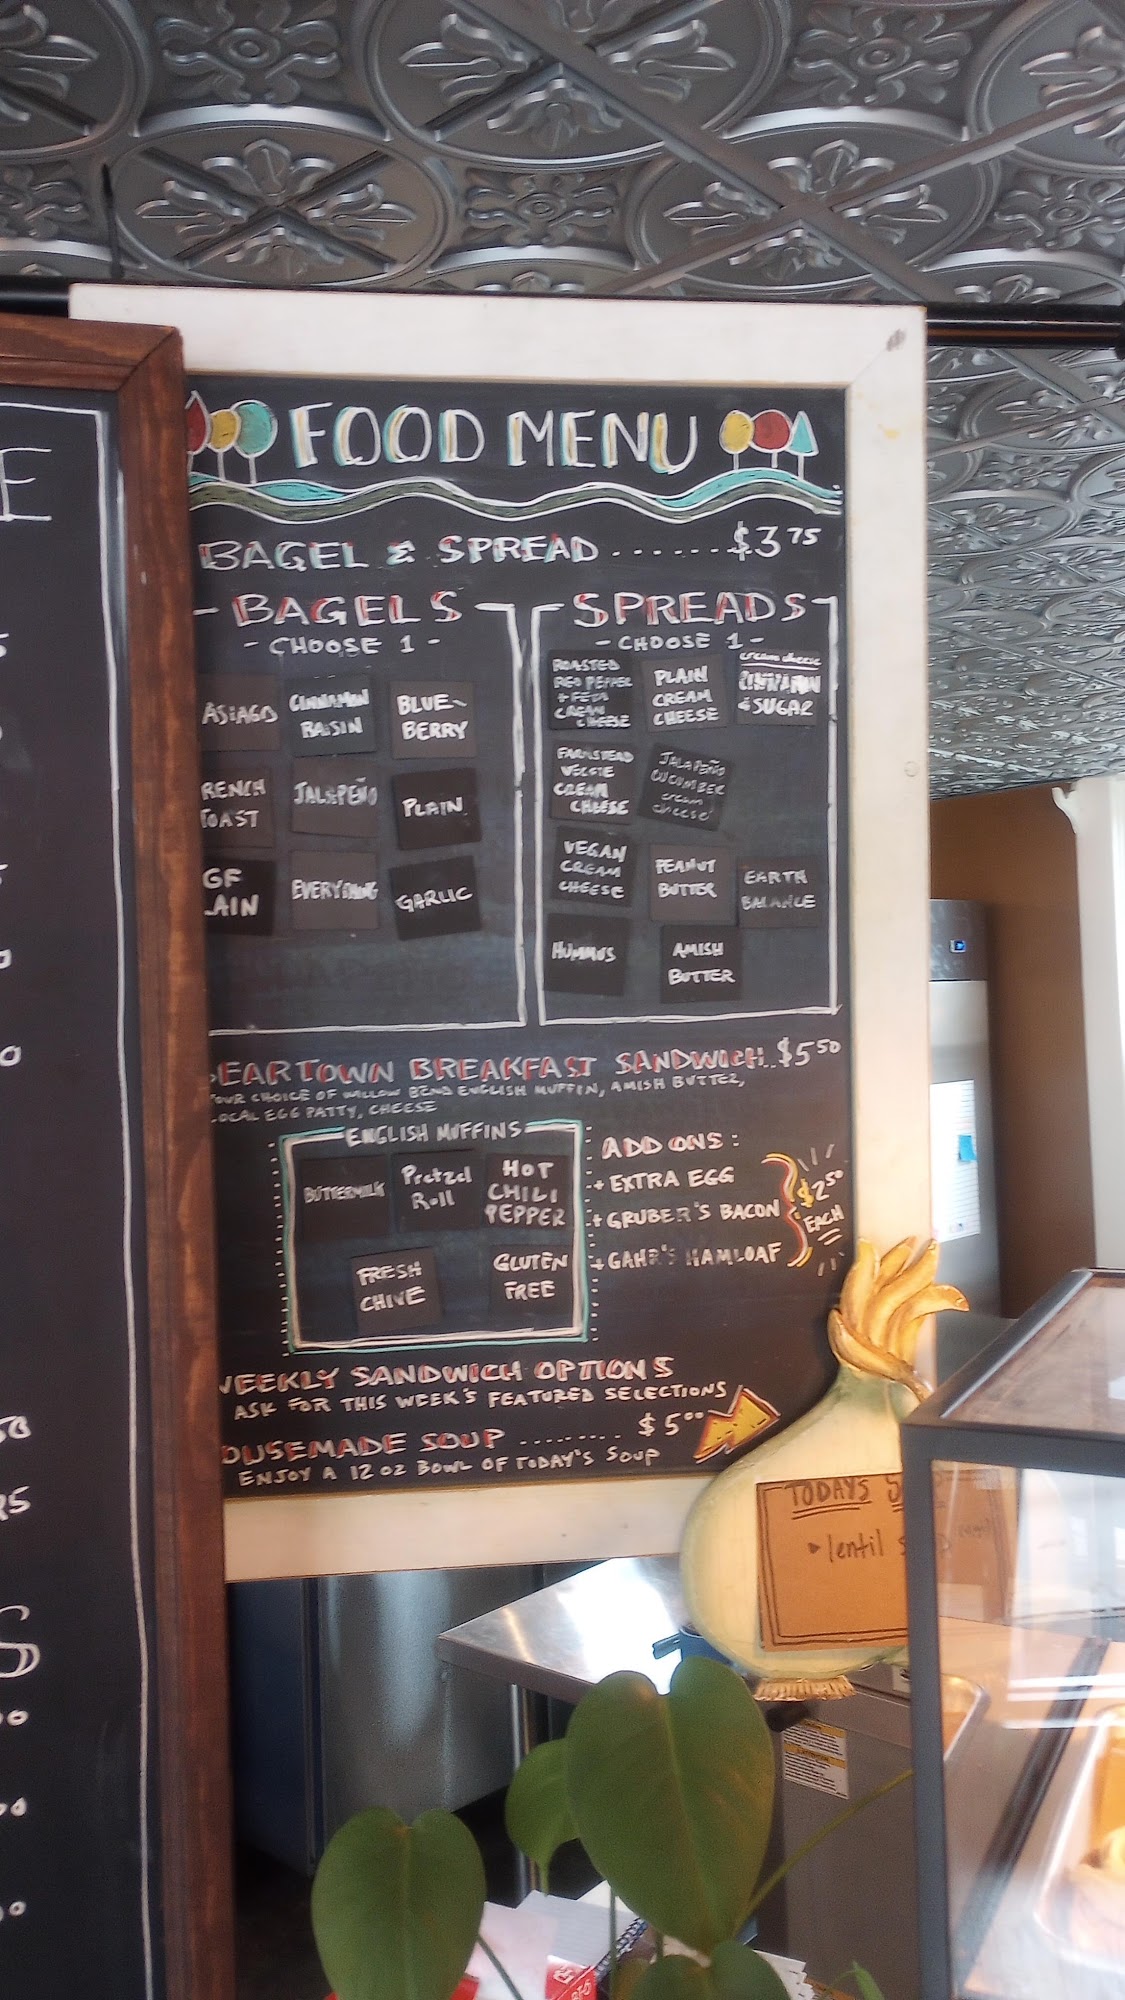 FOOD MENU
BAGEL & SPREAD ....... $3 75
BAGELS
- CHOOSE 1 -
ASIAGO
CINNAMON
RAISIN
BLUE-
BERRY
RENCH
TOAST
JALAPEÑO
PLAIN
GF
LAIN
EVERYTHING
GARLIC
SPREADS
- CHOOSE 1 -
ROASTED
RED PEPPER
+ FETA
CREAM
CHEESE
PLAIN
CREAM
CHEESE
cream cheese
CINNAMON
& SUGAR
FARMSTEAD
VEGGIE
CREAM
CHEESE
JALAPEÑO
CUCUMBER
cream
cheese
VEGAN
CREAM
CHEESE
PEANUT
BUTTER
EARTH
BALANCE
HUMMUS
AMISH
BUTTER
EARTOWN BREAKFAST SANDWICH..$5 50
OUR CHOICE OF WILLOW BEND ENGLISH MUFFIN, AMISH BUTTER,
OCAL EGG PATTY, CHEESE
ENGLISH MUFFINS
BUTTERMILK
Pretzel
Roll
HOT
CHILI
PEPPER
FRESH
CHIVE
GLUTEN
FREE
ADD ONS:
+ EXTRA EGG
+ GRUBER'S BACON
+ GAHR'S HAMLOAF
$2 50
EACH
WEEKLY SANDWICH OPTIONS
ASK FOR THIS WEEK'S FEATURED SELECTIONS
OUSEMADE SOUP ......... $5 00
ENJOY A 12 OZ BOWL OF TODAY'S SOUP
TODAYS S
lentil
E
S